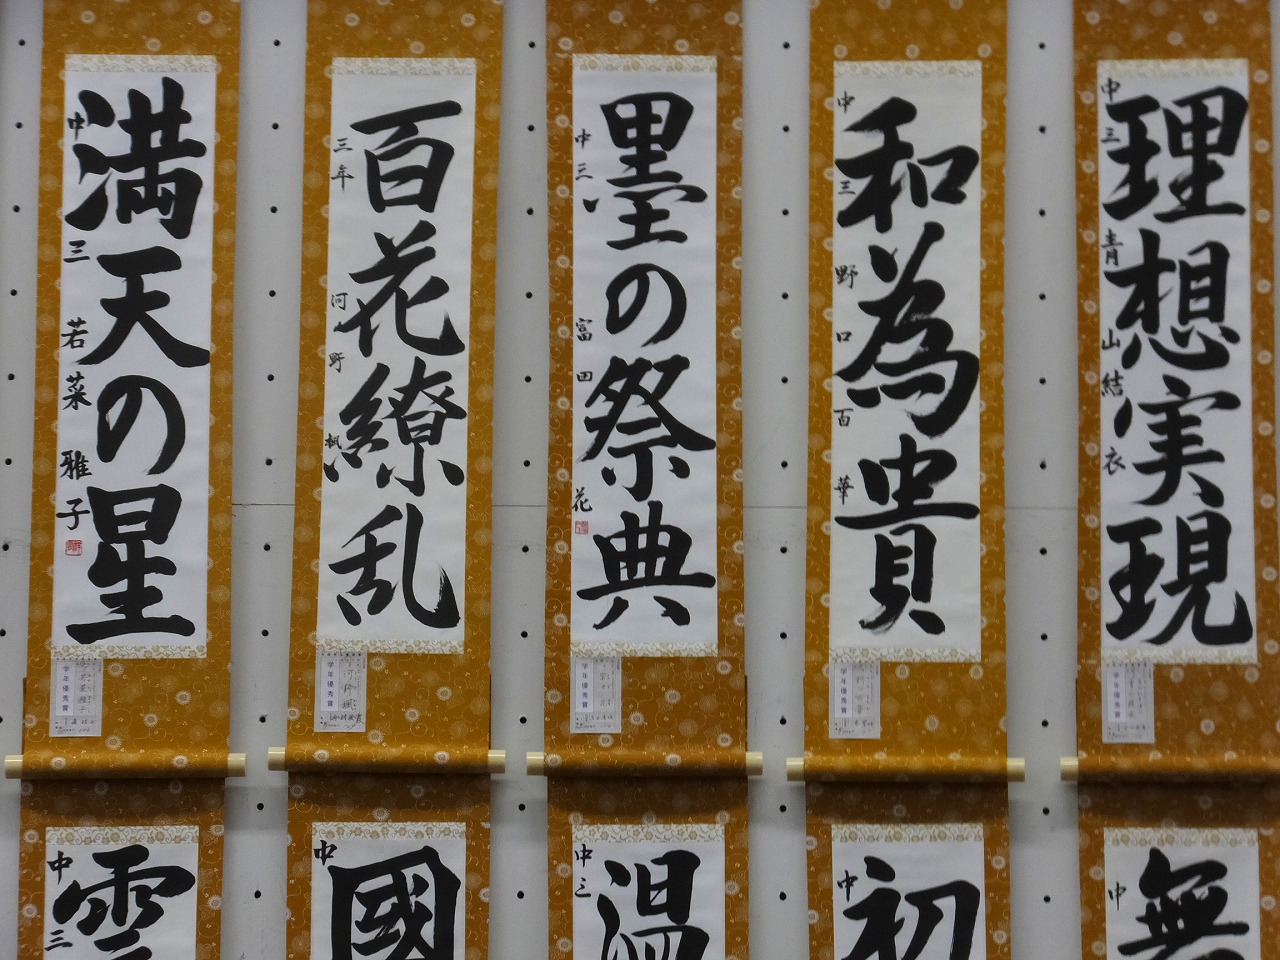 理想実現
中三 青山結衣
和為貴
中三 野口百華
墨の祭典
中三 富田花
百花繚乱
三年 河野楓
満天の星
中三 若菜雅子
学年優秀賞
学年優秀賞
学年優秀賞
学年優秀賞
学年優秀賞
無
中
初
中
温
中三
國
中
雲
中三